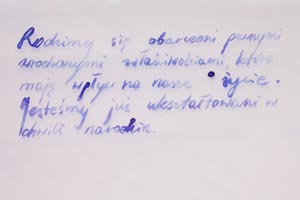 Rodzimy się obarczeni pewnymi
wrodzonymi właściwościami, które
mają wpływ na nasze życie.
Jesteśmy już ukształtowani w
chwili narodzin.